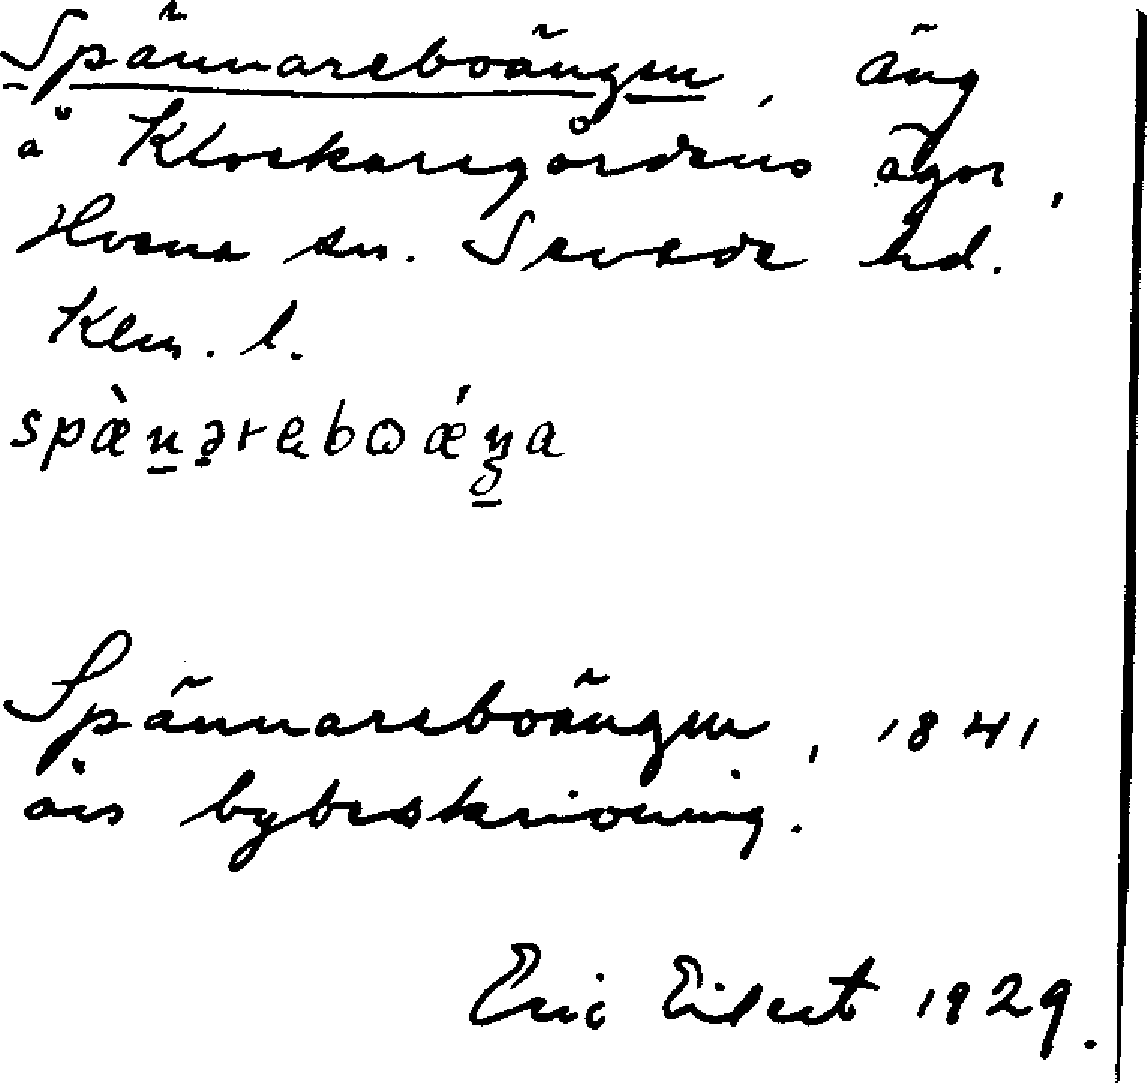 Spännareboängen, äng
å Klockaregårdens ägor,
Hvena sn. Sevede hd.
Klm. l.
spæ̀n̠ərebωǽŋa
Spännareboängen, 1841
års bybeskrivning.
Eric Eilert 1929.